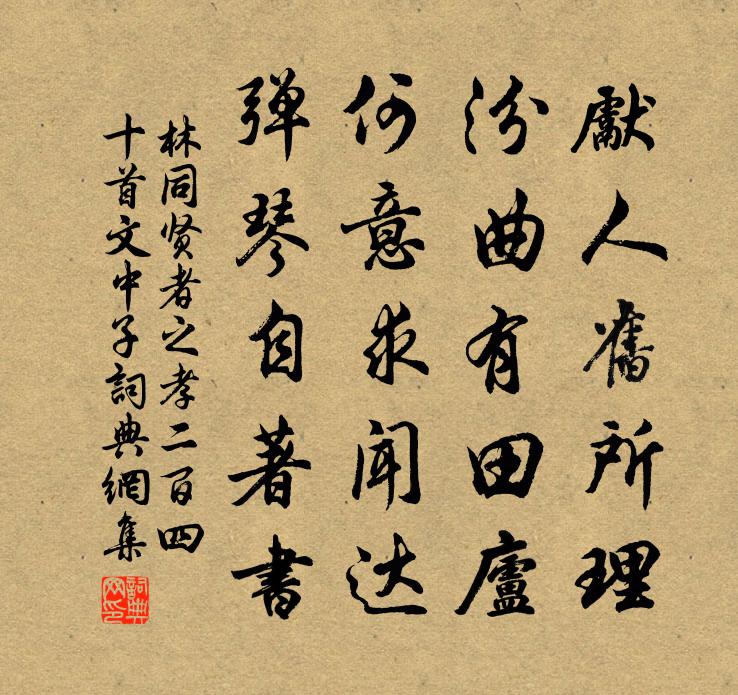 獻人舊所理
汾曲有田廬
何意求闻达
弹琴自著書
林同贤者之孝二百四
十首文中子詞典網集
詞典
网印